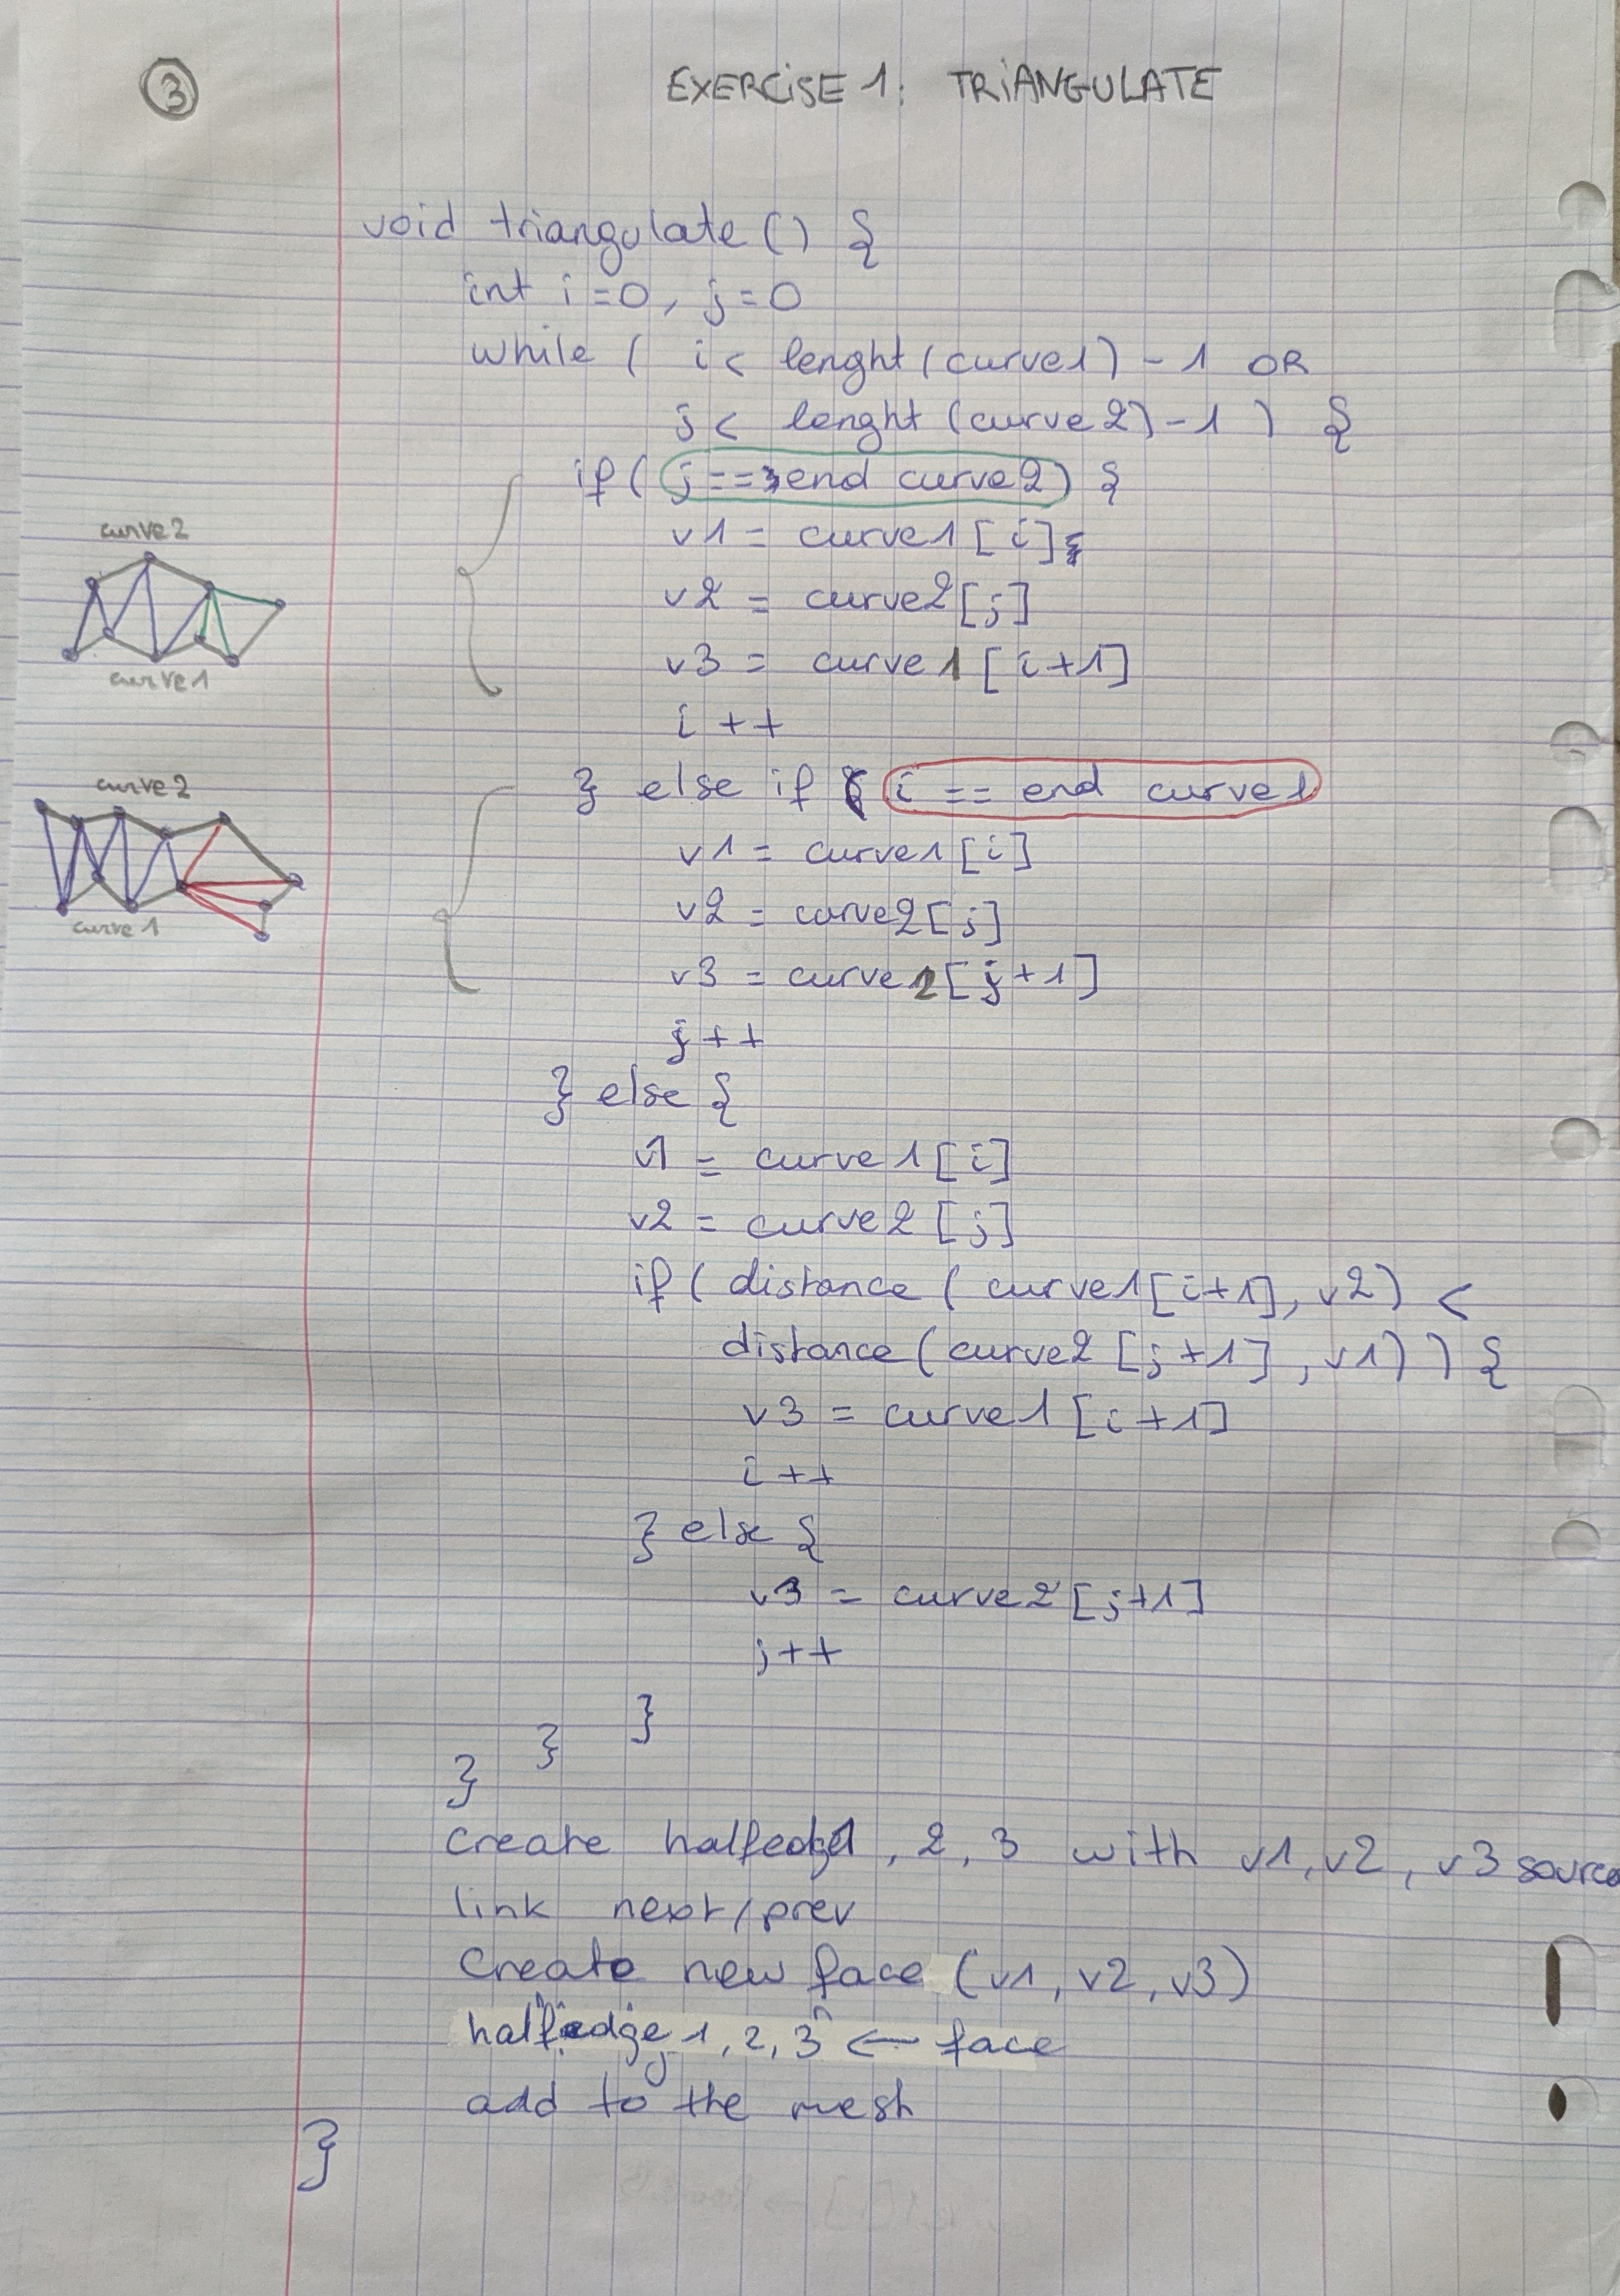 3
EXERCISE 1: TRIANGULATE
void triangulate () {
int i=0, j=0
while ( i < lenght (curve1) - 1 OR
j < lenght (curve2) - 1 ) {
if ( j == end curve2) {
v1 = curve1 [i];
v2 = curve2 [j]
v3 = curve1 [i+1]
i ++
curve2
curve1
} else if ( i == end curve1
v1 = curve1 [i]
v2 = curve2 [j]
v3 = curve2 [j+1]
j ++
curve2
curve1
} else {
v1 = curve1 [i]
v2 = curve2 [j]
if ( distance ( curve1 [i+1], v2) <
distance ( curve2 [j+1], v1) ) {
v3 = curve1 [i+1]
i ++
} else {
v3 = curve2 [j+1]
j++
}
}
}
create halfedge1, 2, 3 with v1, v2, v3 source
link next/prev
Create new face (v1, v2, v3)
halfedge 1, 2, 3 ← face
add to the mesh
}